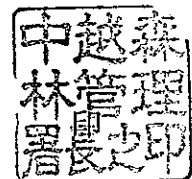 中越森
林管理
署長之印